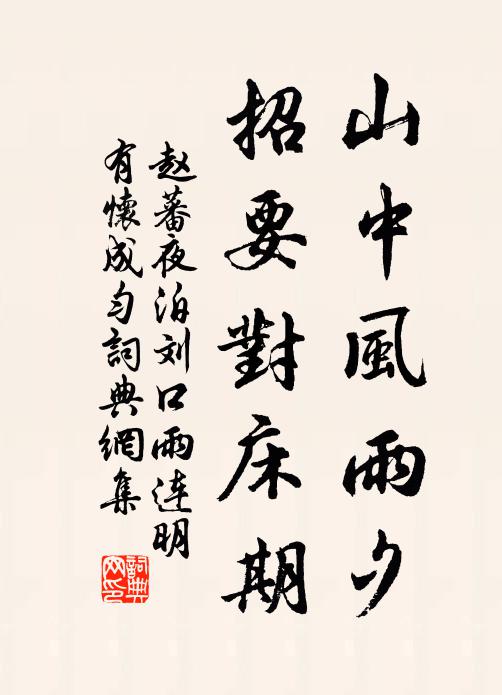 山中風雨夕
招要對床期
赵蕃夜泊刘口雨连明
有懷成匀詞典網集
詞典
网印